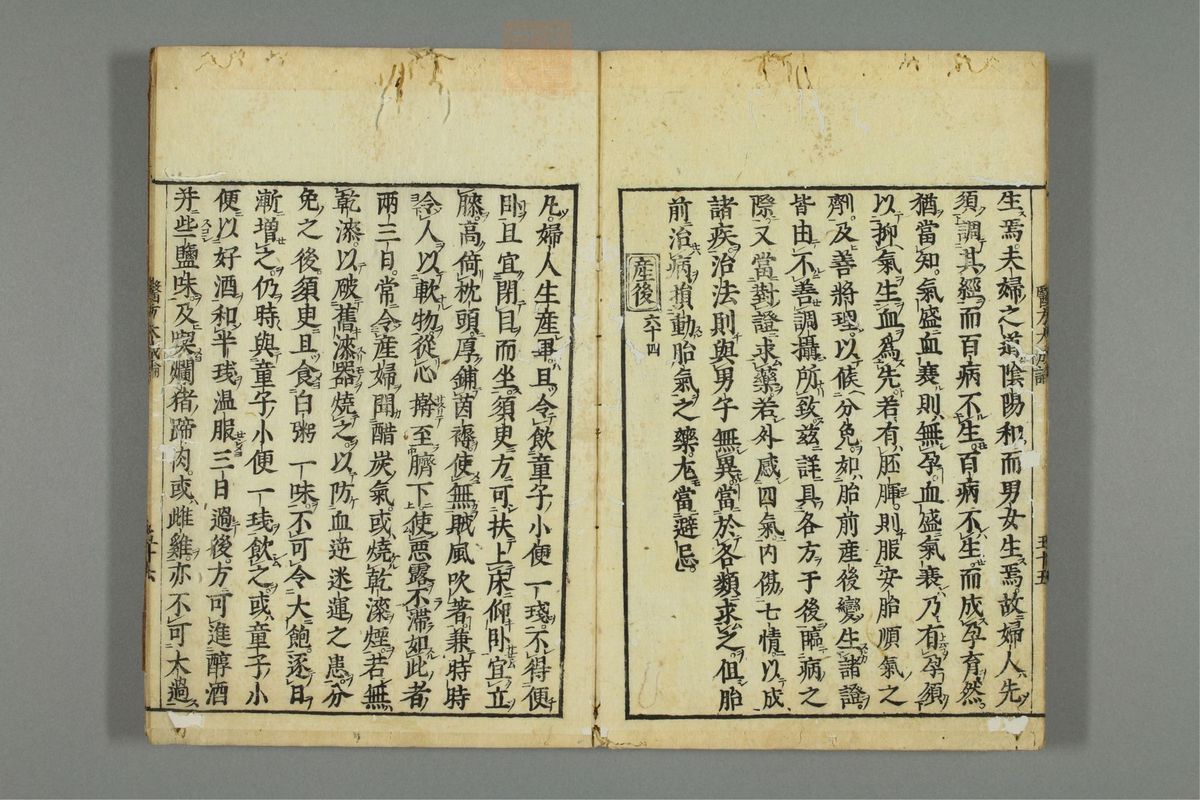 生焉夫婦之道陰陽和而男女生焉故婦人先
須調其經而百病不生百病不生而成孕育然
猶當知氣盛血衰則無孕血盛氣衰乃有孕須
以抑氣生血為先若有胚腪則服安胎順氣之
劑及善將理以候分免如胎前產後變生諸證
皆由不善調攝所致茲詳具各方于後臨病之
際又當對證求藥若外感四氣內傷七情以成
諸疾治法則與男子無異當於各類求之但胎
前治病損動胎氣之藥尢當避忌
産後 六十四
凡婦人生産畢且令飲童子小便一琖不得便
臥且宜閉目而坐須臾方可扶上床仰臥宜立
膝高倚枕頭厚鋪茵褥使無賊風吹著兼時時
令人以軟物從心擀至臍下使惡露不滯如此者
兩三日常令産婦聞醋炭氣或燒乾漆煙若無
乾漆以破舊漆器燒之以防血逆迷運之患分
免之後須臾且食白粥一味不可令大飽逐日
漸增之仍時與童子小便一琖飲之或童子小
便以好酒和半琖温服三日過後方可進醇酒
幷些鹽味及喫爛猪蹄肉或雌雞亦不可太過